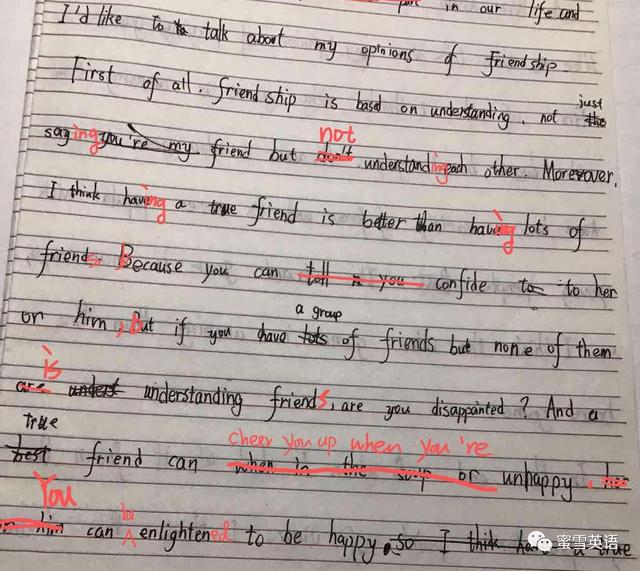 in our life and
I'd like to talk about my opinions of friendship.
First of all, friendship is based on understanding, not just
saying you're my friend but not understanding each other. Moreover,
I think having a true friend is better than having lots of
friends. Because you can confide to to her
or him, But if you have a group of friends but none of them
is understanding friends, are you disappointed? And a
true friend can cheer you up when you're unhappy.
You can enlightened to be happy. so I think have a true
蜜雪英语